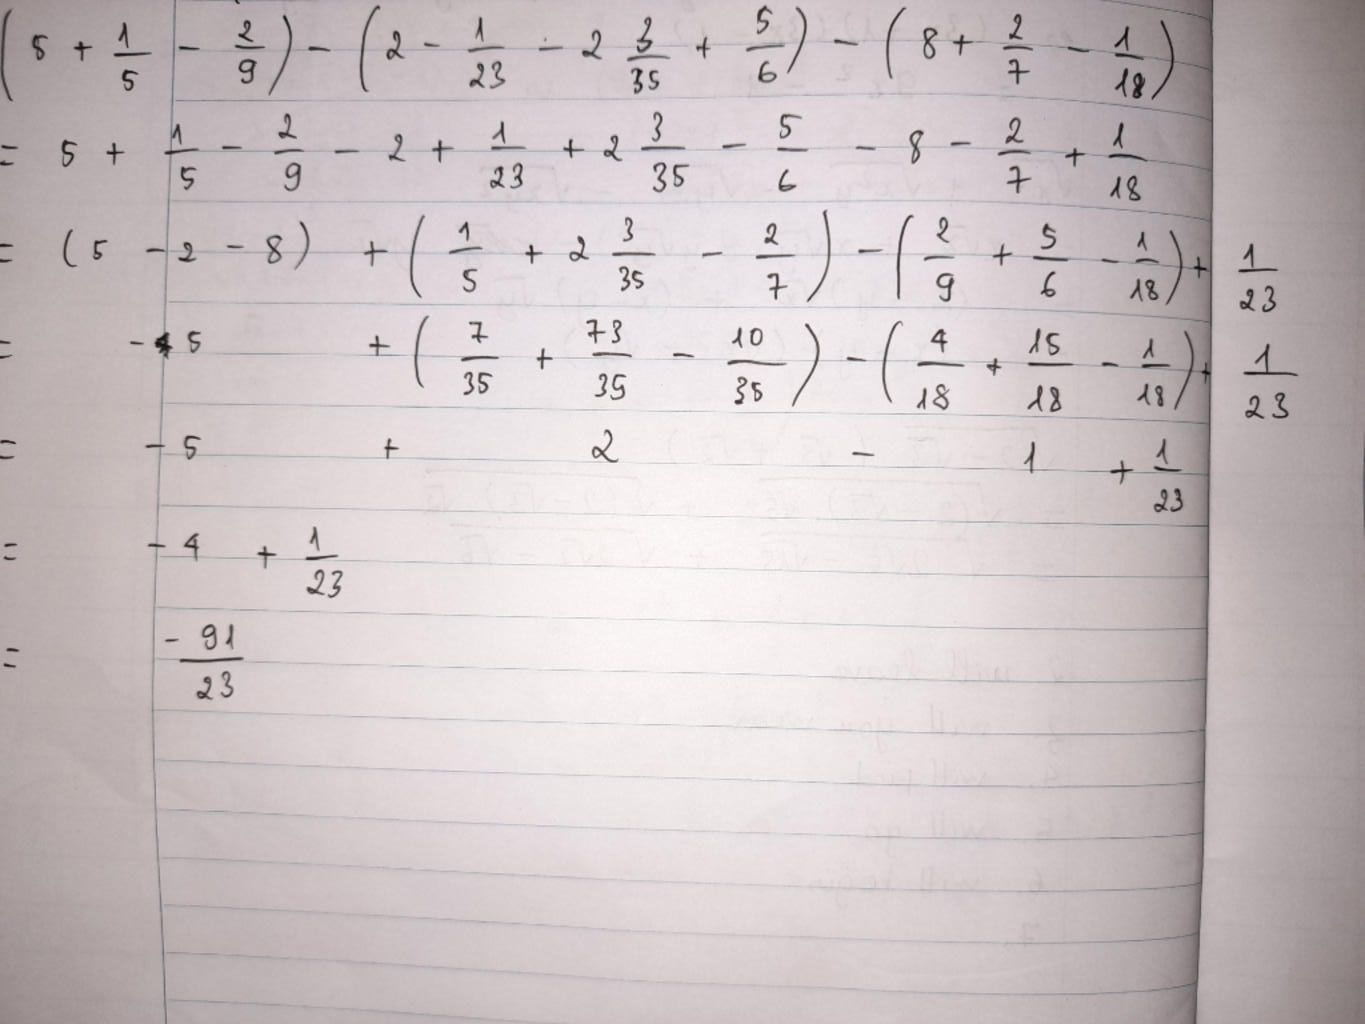 (5 + 1/5 - 2/9) - (2 - 1/23 - 2 3/35 + 5/6) - (8 + 2/7 - 1/18)
= 5 + 1/5 - 2/9 - 2 + 1/23 + 2 3/35 - 5/6 - 8 - 2/7 + 1/18
= (5 - 2 - 8) + (1/5 + 2 3/35 - 2/7) - (2/9 + 5/6 - 1/18) + 1/23
= -5 + (7/35 + 73/35 - 10/35) - (4/18 + 15/18 - 1/18) + 1/23
= -5 + 2 - 1 + 1/23
= -4 + 1/23
= -91/23